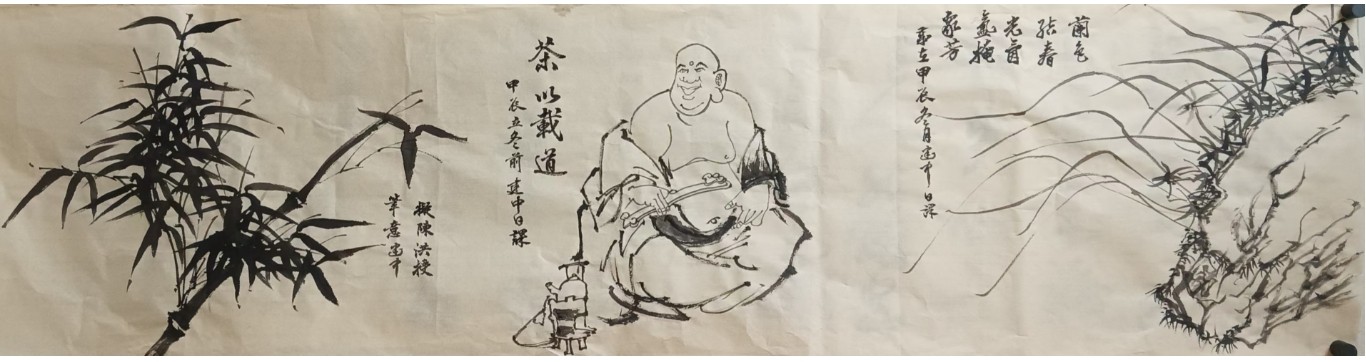 蘭色
結春
光氛
氳掩
衆芳
歲在甲辰冬月建中日課
茶以載道
甲辰立冬前建中日課
擬陳洪授
筆意建中